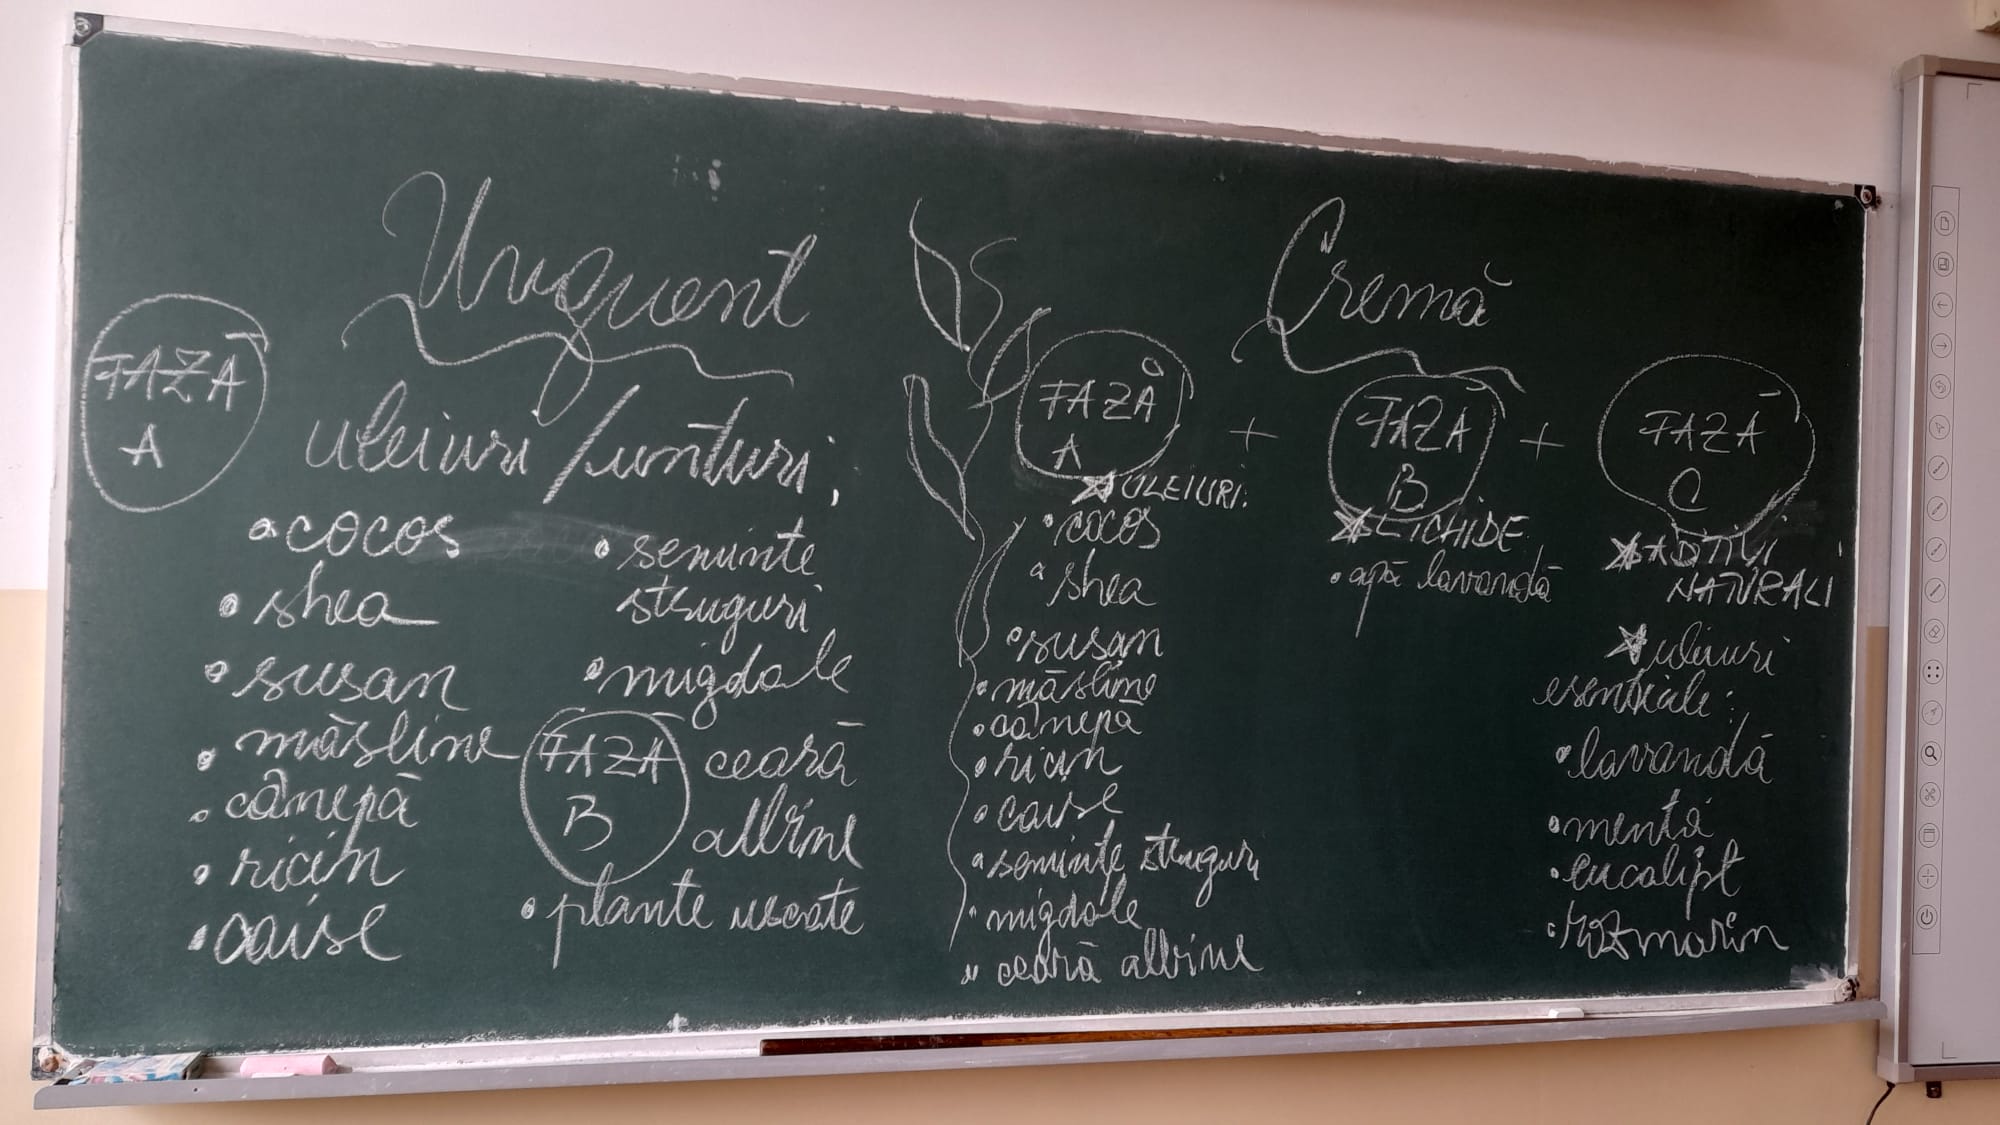 Unguent
FAZĂ
A
uleiuri/unturi;
• cocos
• shea
• susan
• măsline
• cânepă
• ricin
• caise
• seminte
struguri
• migdale
FAZĂ
B
ceară
albine
• plante uscate
Cremă
FAZĂ
A
ULEIURI:
• cocos
• shea
• susan
• măsline
• cânepă
• ricin
• caise
• seminţe struguri
• migdale
ceară albine
+
FAZĂ
B
LICHIDE
• apă lavandă
+
FAZĂ
C
ADITIVI
NATURALI
uleiuri
esentiale:
• lavandă
• mentă
• eucalipt
• rozmarin